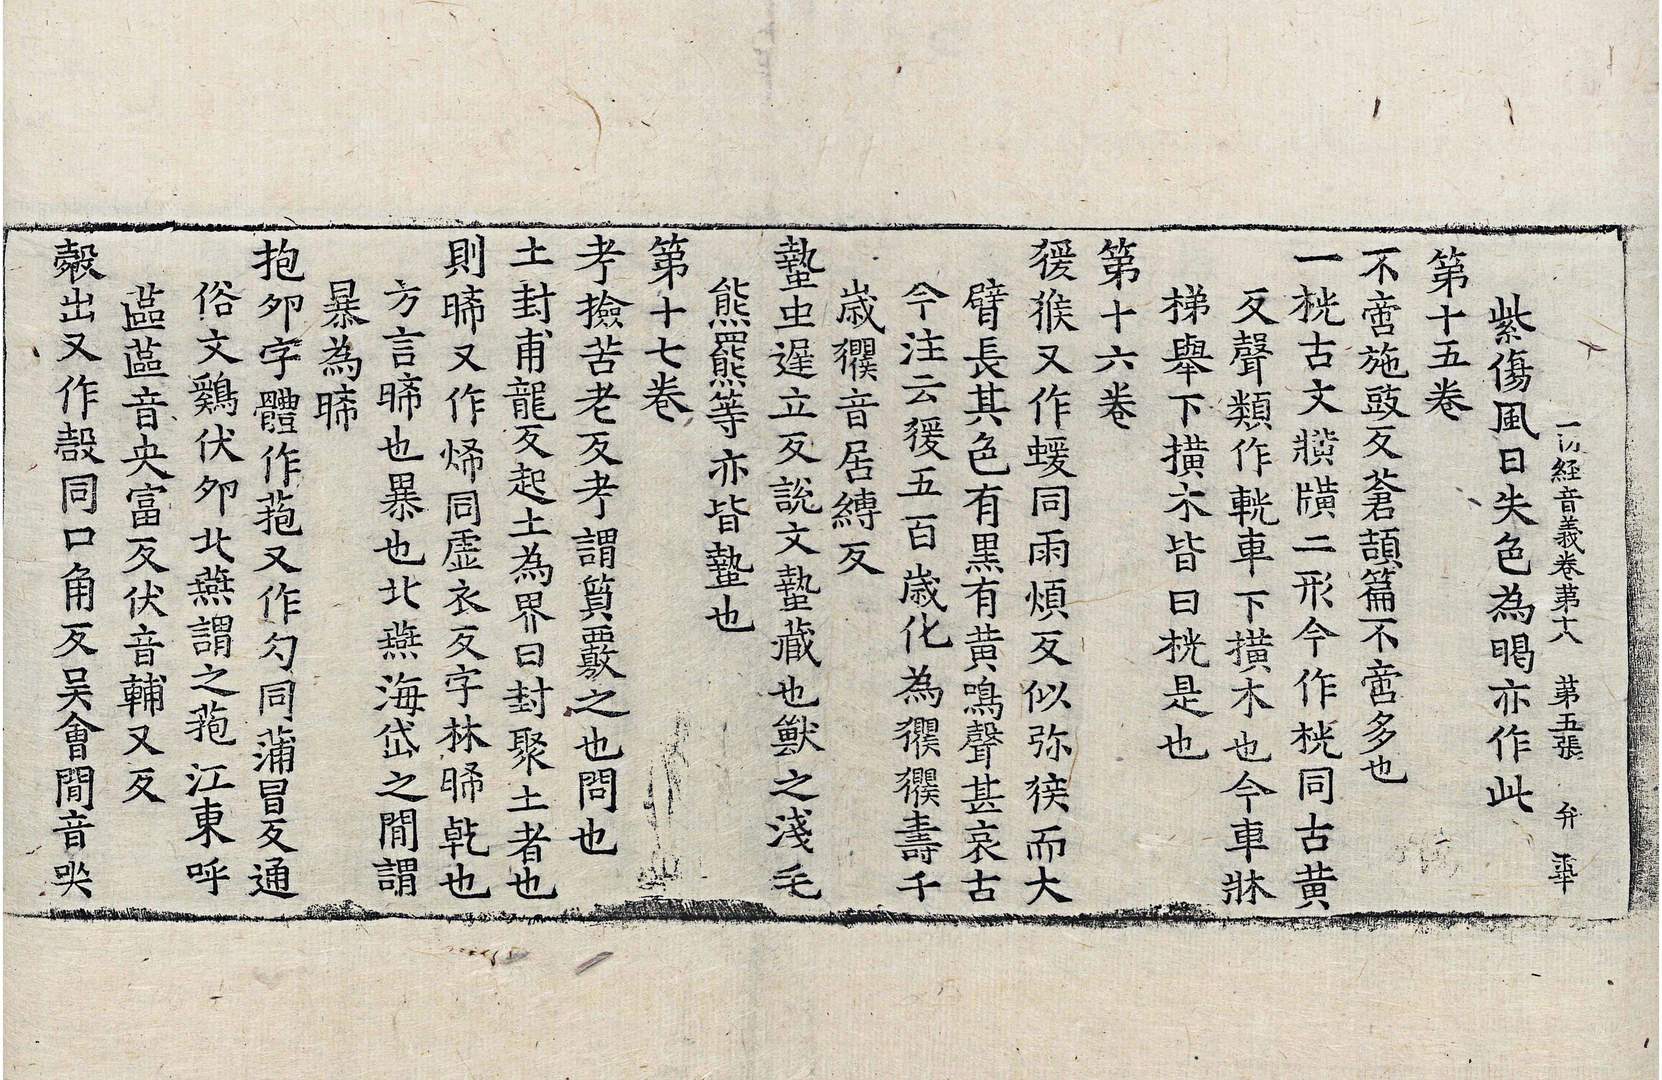 一切經音義卷第十八 第五張 弁 華
紫傷風日失色為暍亦作此
第十五卷
不啻施豉反蒼頡篇不啻多也
一桄古文橫䊗二形今作桄同古黃
反聲類作軦車下撗木也今車牀
梯舉下撗木皆曰桄是也
第十六卷
猨猴又作蝯同雨煩反似弥猴而大
臂長其色有黑有黃鳴聲甚哀古
今注云猨五百歲化為玃玃壽千
歲玃音居縛反
蟄虫遟立反說文蟄藏也獸之淺毛
熊羆等亦皆蟄也
第十七卷
考撿苦老反考謂質覈之也問也
土封甫龍反起土為界曰封封聚土者也
則晞又作烯同虛衣反字林晞乾也
方言晞也暴也北燕海岱之間謂
暴為晞
抱卵字體作菢又作勽同蒲冒反通
俗文雞伏卵北燕謂之菢江東呼
蓲蓲音央富反伏音輔又反
㲉出又作㱿同口角反吳會間音哭